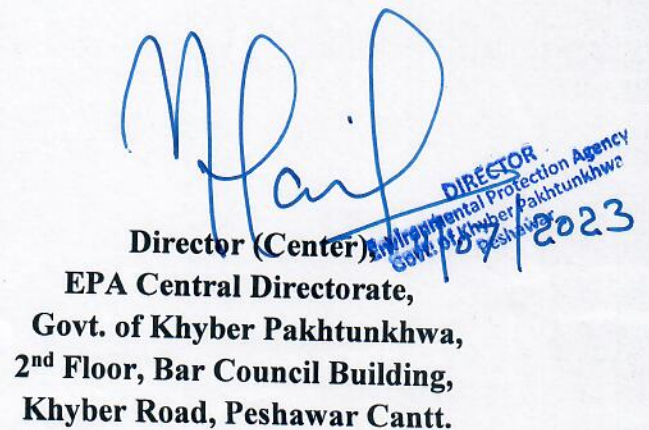 DIRECTOR
Environmental Protection Agency
Govt. of Khyber Pakhtunkhwa
Peshawar
/07/2023
Director (Center),
EPA Central Directorate,
Govt. of Khyber Pakhtunkhwa,
2nd Floor, Bar Council Building,
Khyber Road, Peshawar Cantt.